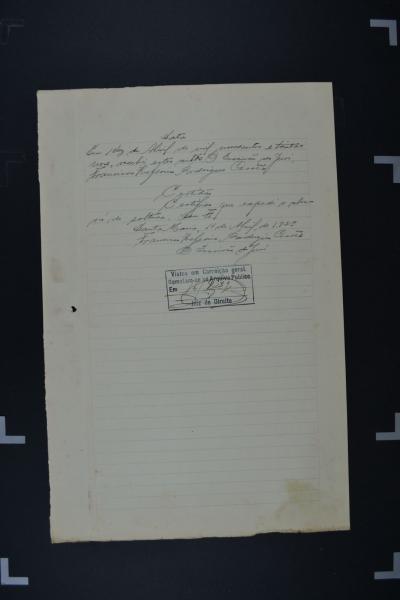 Data
Em 14 de Abril de mil novecentos e trinta
nove, recebi estes autos. O Escrivão do Juri,
Francisco Rodrigues
Certidão
Certifico que expedi o alva-
rá de soltura. Dou fé.
Santa Maria, 14 de Abril de 1939
Francisco Rodrigues
O Escrivão do Juri
Vistos em Correição geral.
Remetam-se ao Arquivo Publico
Em
Juiz de Direito